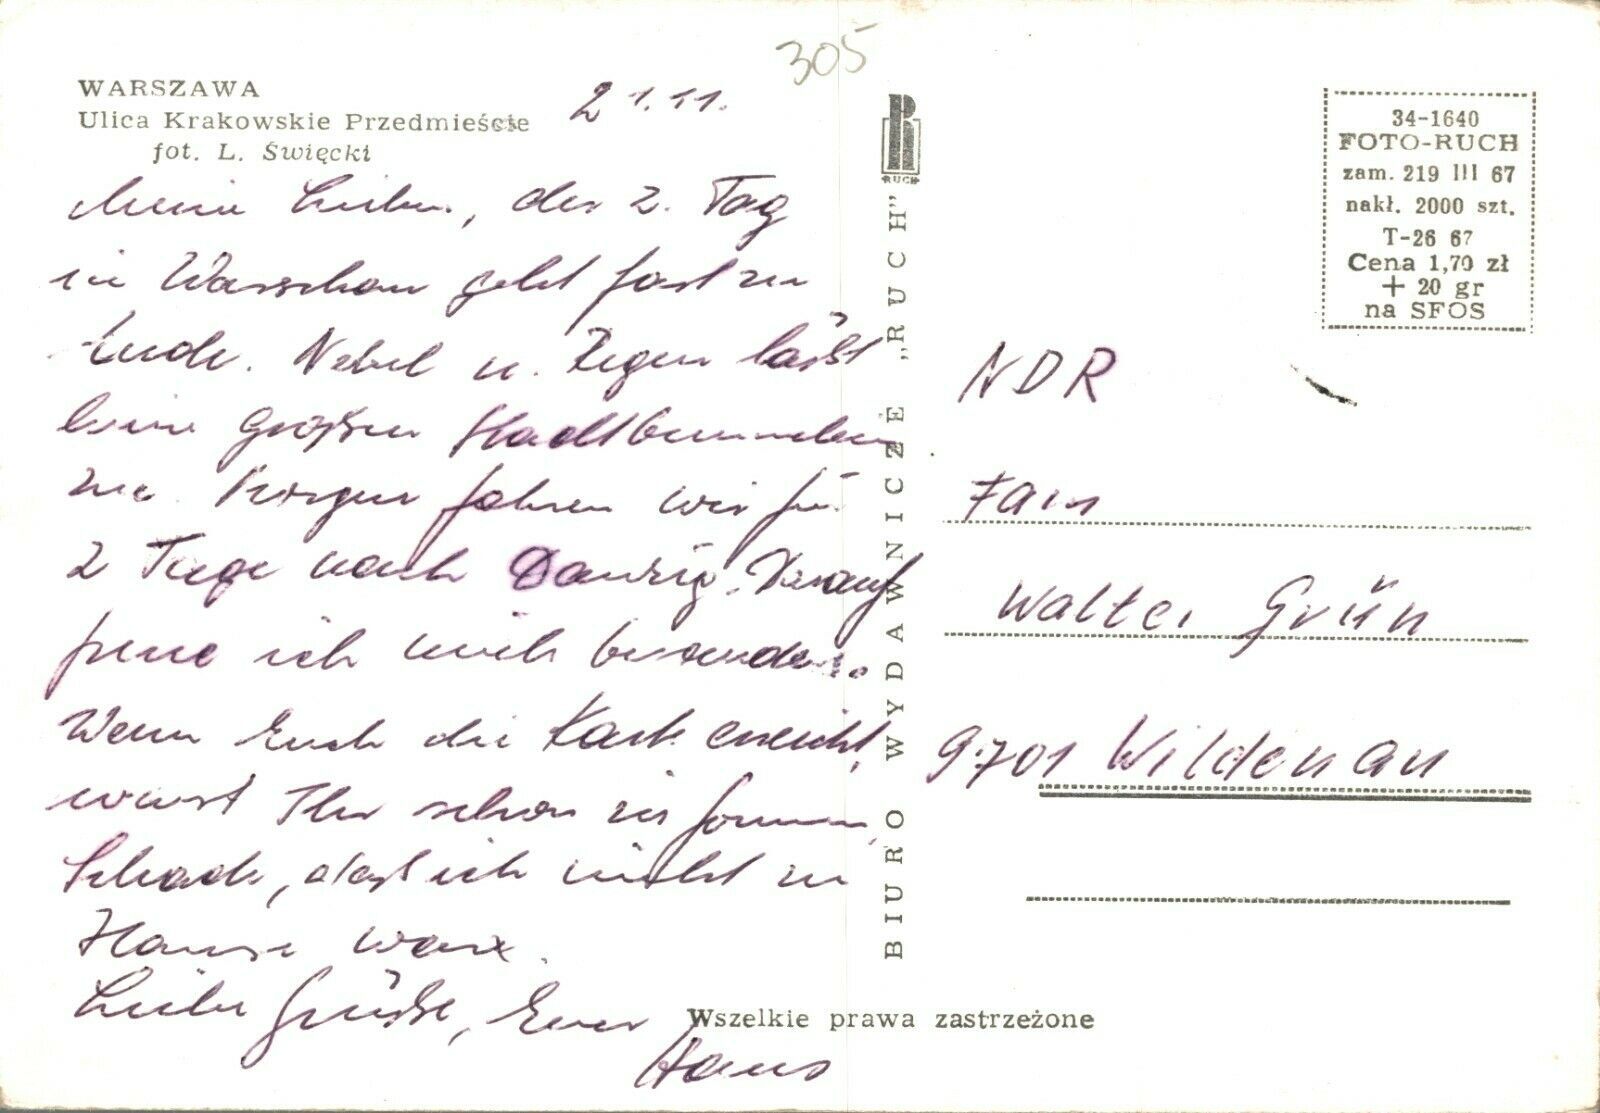 305
WARSZAWA
Ulica Krakowskie Przedmieście
fot. L. Święcki
21.11.
Meine Lieben, der 2. Tag
in Warschau geht fast zu
Ende. Nebel u. Regen läßt
keine großen Stadtbummeleien
zu. Morgen fahren wir für
2 Tage nach Danzig. Darauf
freue ich mich besonders.
Wenn Euch die Karte erreicht,
wart Ihr schon in
Schade, daß ich nicht zu
Hause war.
Liebe Grüße, Euer
Hans
RUCH
BIURO WYDAWNICZE „RUCH"
Wszelkie prawa zastrzeżone
34-1640
FOTO-RUCH
zam. 219 III 67
nakł. 2000 szt.
T-26 67
Cena 1,70 zł
+ 20 gr
na SFOS
NDR
Fam
Walter Grün
9701 Wildenau